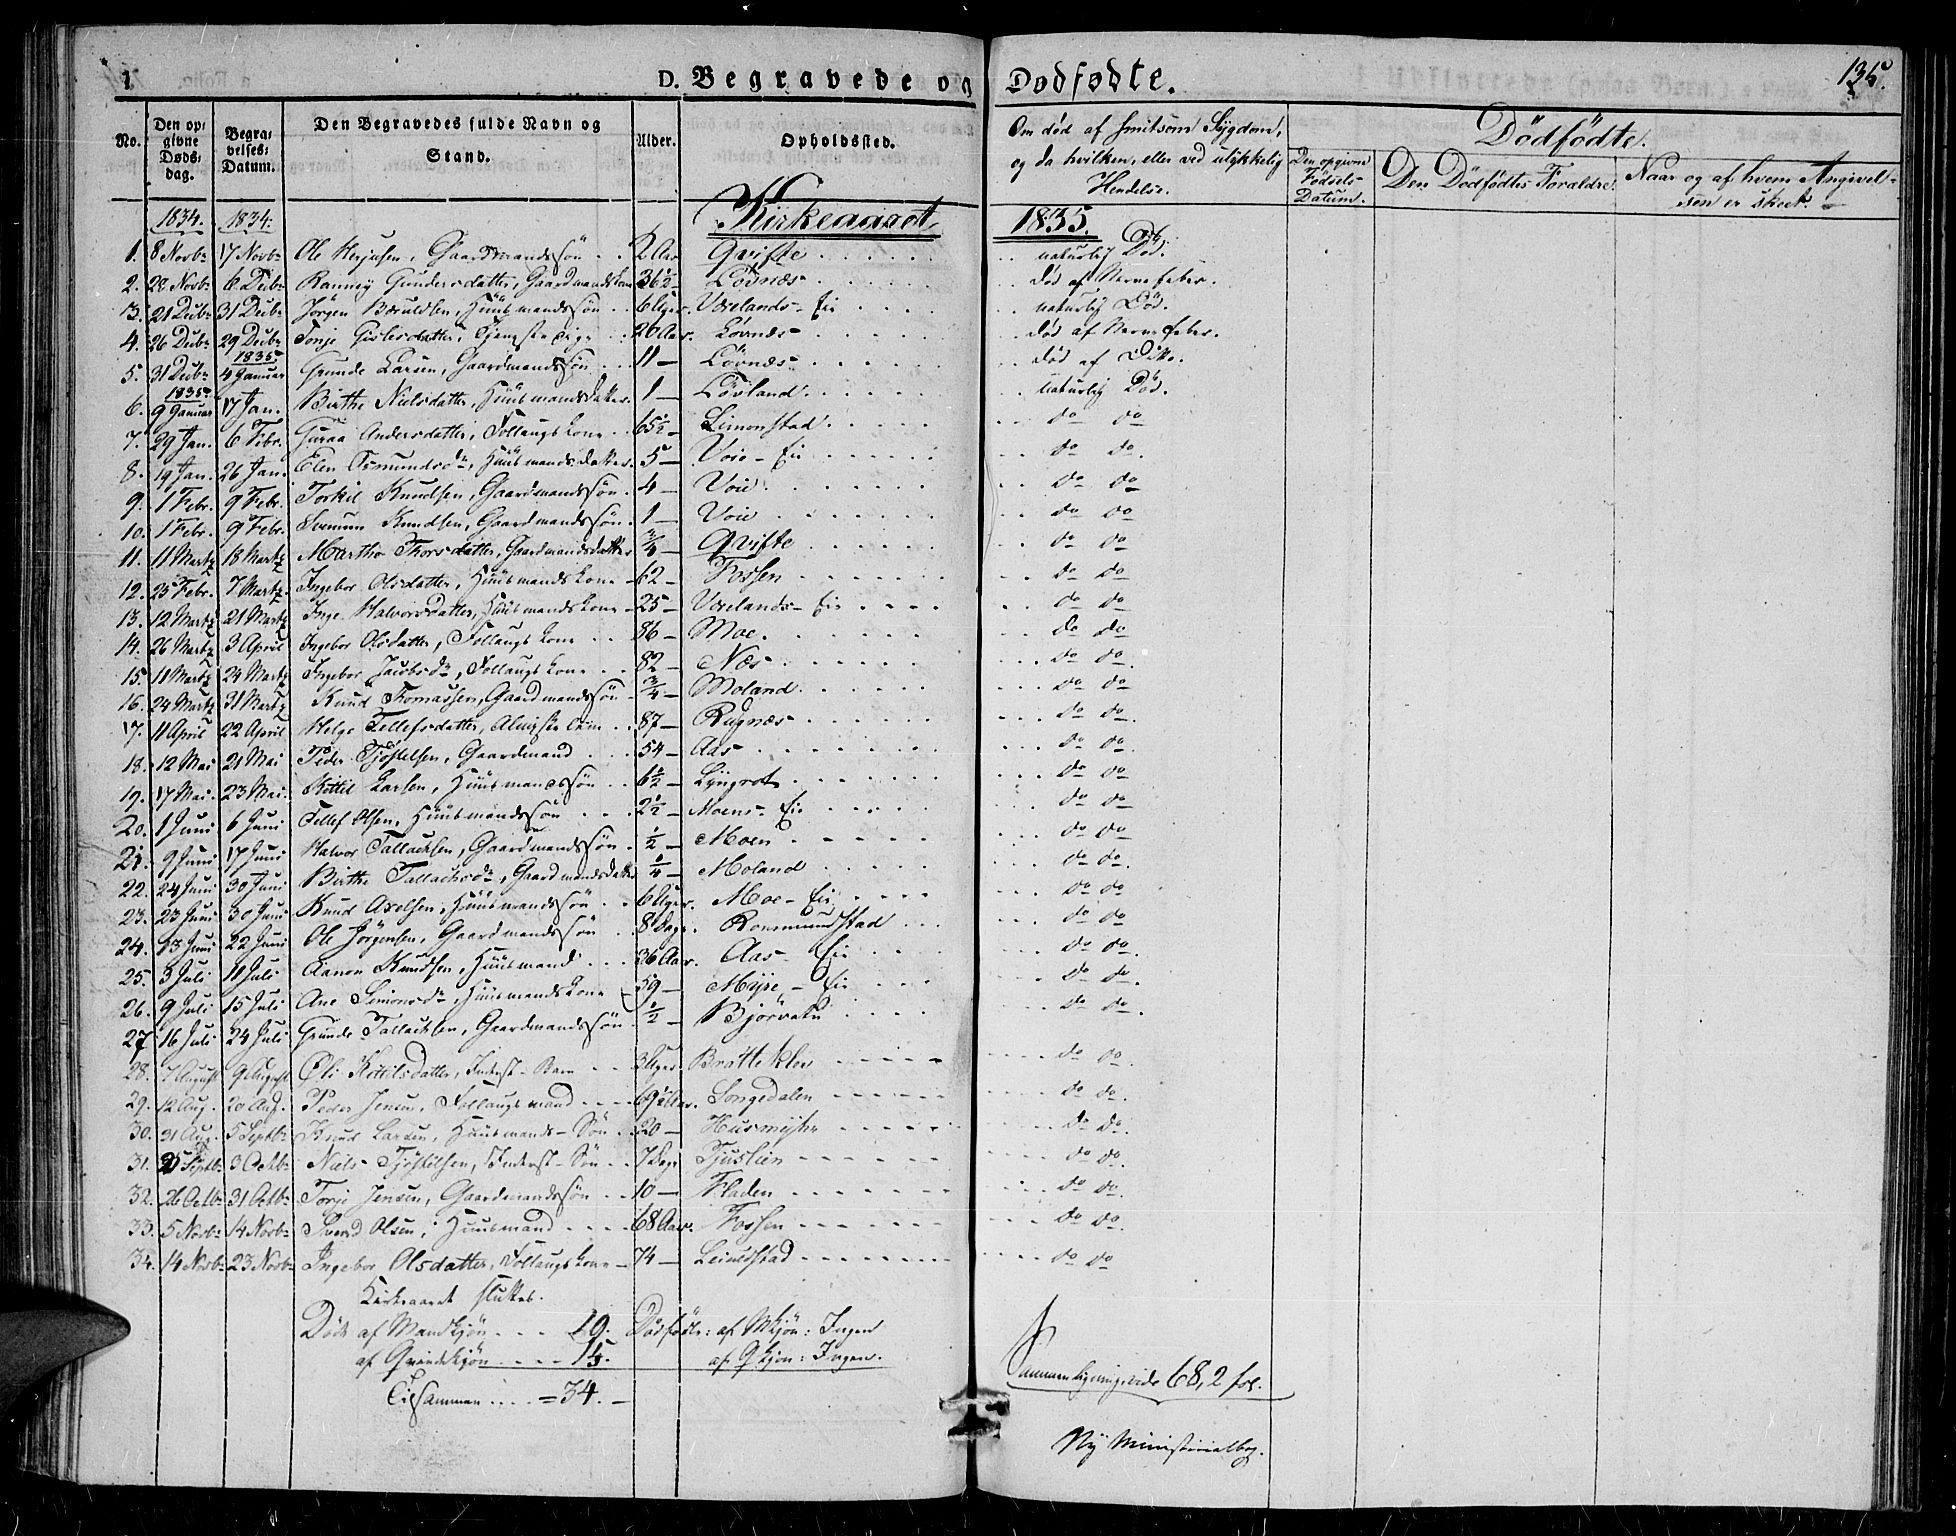 D. Begravede og Dødfødte.
135.
No. Den opgivne Dødsdag. Begravelses-Datum. Den Begravedes fulde Navn og Stand. Alder. Opholdssted. Om død af smitsom Sygdom, og da hvilken, eller ved ulykkelig Hendelse. Dødfødte.
Den opgivne Fødsels Datum. Den Dødfødtes Forældre. Naar og af hvem Angivelsen er skeet.
1834. 1834. Kirkeaaret 1835.
1. 8 Novbr 17 Novbr Ole Gaardmandssøn 2 Aar Qvifte naturlig Død.
2. 28 Novbr 6 Decbr Ranneÿ Gundersdatter, Gaardmandskone 36½ Løvnæs død af Nervefeber.
3. 21 Decbr 31 Decbr Jörgen Huusmandssøn 6 Uger Vorelands-Eie naturlig Død.
4. 26 Decbr 29 Decbr Tonje Tjenestepige 26 Aar. Løvnæs død af Nervefeber.
1835
5. 31 Decbr 4 Januar Grunde Larsen, Gaardmandssøn 11 — Løvnæs død af Ditto.
1835
6. 9 Januar 17 Jan. Birthe Nielsdatter, Huusmandsdatter 1 — Løvland. naturlig Død.
7. 29 Jan. 6 Febr. Guroe Andersdatter, Follaugskone 65½ — Simonstad. do do
8. 19 Jan. 26 Jan. Elen Osmundsdr, Huusmandsdatter. 5 — Voie-Eie do do.
9. 1 Febr. 9 Febr. Torkil Knudsen, Gaardmandssøn. 4 — Voie. do do
10. 1 Febr. 9 Febr. Knudsen, Gaardmandssøn. 1 — Voie do do
11. 11 Martz 18 Martz Marthe Thorsdatter, Gaardmandsdatter ¾ — Qvifte do do
12. 25 Febr. 7 Martz. Ingebor Olsdatter, Huusmandskone 62 — Fossen do do
13. 12 Martz 21 Martz Inge Halvorsdatter, Huusmandskone 25 — Vorelands-Eie do do
14. 26 Martz 3 April Ingebor Olsdatter, Follaugskone 86 — Moe. do do
15. 11 Martz 24 Martz Ingebor Jacobsdr, Follaugskone 82 — Næs do do.
16. 24 Martz 31 Martz Knud Thomassen, Gaardmandssøn ¾ — Moland. do do
17. 11 April 22 April Helge Tellefsdatter, 87 — Rugnæs do do.
18. 12 Mai 21 Mai Peder Tjøstelsen, Gaardmand 54 — Aas do do.
19. 17 Mai. 23 Mai. Kittil Larsen, Huusmandssøn 6½ — Lyngrot do do
20. 1 Juni 6 Juni Tellef Olsen, Huusmandssøn 2½ — Moens-Eie do do.
21. 9 Juni 17 Juni Halvor Tallachsen, Gaardmandssøn. ½ — Moen do do.
22. 24 Juni 30 Juni Birthe Tallachsdr, Gaardmandsdatter ¼ — Moland do do.
23. 23 Juni 30 Juni Knud Axelsen, Huusmandssøn 6 Uger. Moe-Eie do do
24. 13 Juni 22 Juni Ole Jörgensen, Gaardmandssøn 8 Dage Rommundstad do do
25. 3 Juli 11 Juli Aanon Knudsen, Huusmand 36 Aar. Aas-Eie do do.
26. 9 Juli 15 Juli Ane Simonsdr, Huusmandskone 59 — Myre-Eie do do.
27 16 Juli 24 Juli Grunde Tallachsen, Gaardmandssøn. ½ — Bjørvatn do do.
28. 7 August 9 August Kittilsdatter, Inderst-Barn 3 Uger. Bratteklev do do.
29. 12 Aug. 20 Aug. Peder Jensen, Follaugsmand 69½ Aar. Songedalen do do.
30. 31 Aug. 5 Septbr Knud Larsen, Huusmands-Søn 20 — Husmyhr do do.
31. 25 Septbr 3 Octbr Niels Tjøstelsen, Inderst-Søn 7 Dage Tjuslien do do.
32. 26 Octbr 31 Octbr Torje Jensen, Gaardmandssøn 10 — Fladen do do.
33. 5 Novbr 14 Novbr Svend Olsen, Huusmand 68 Aar. Fossen do do.
34. 14 Novbr 23 Novbr Ingebor Olsdatter, Follaugskone 74 — do do
Kirkeaaret sluttes.
Døde af Mandkjøn 19. Dødfødte: af Mkjøn: Ingen
af Qvindekjøn 15. af Qkjøn: Ingen.
Tilsammen = 34. —
Sammenligning vide 68, 2 fol.
Ny Ministerialbog.